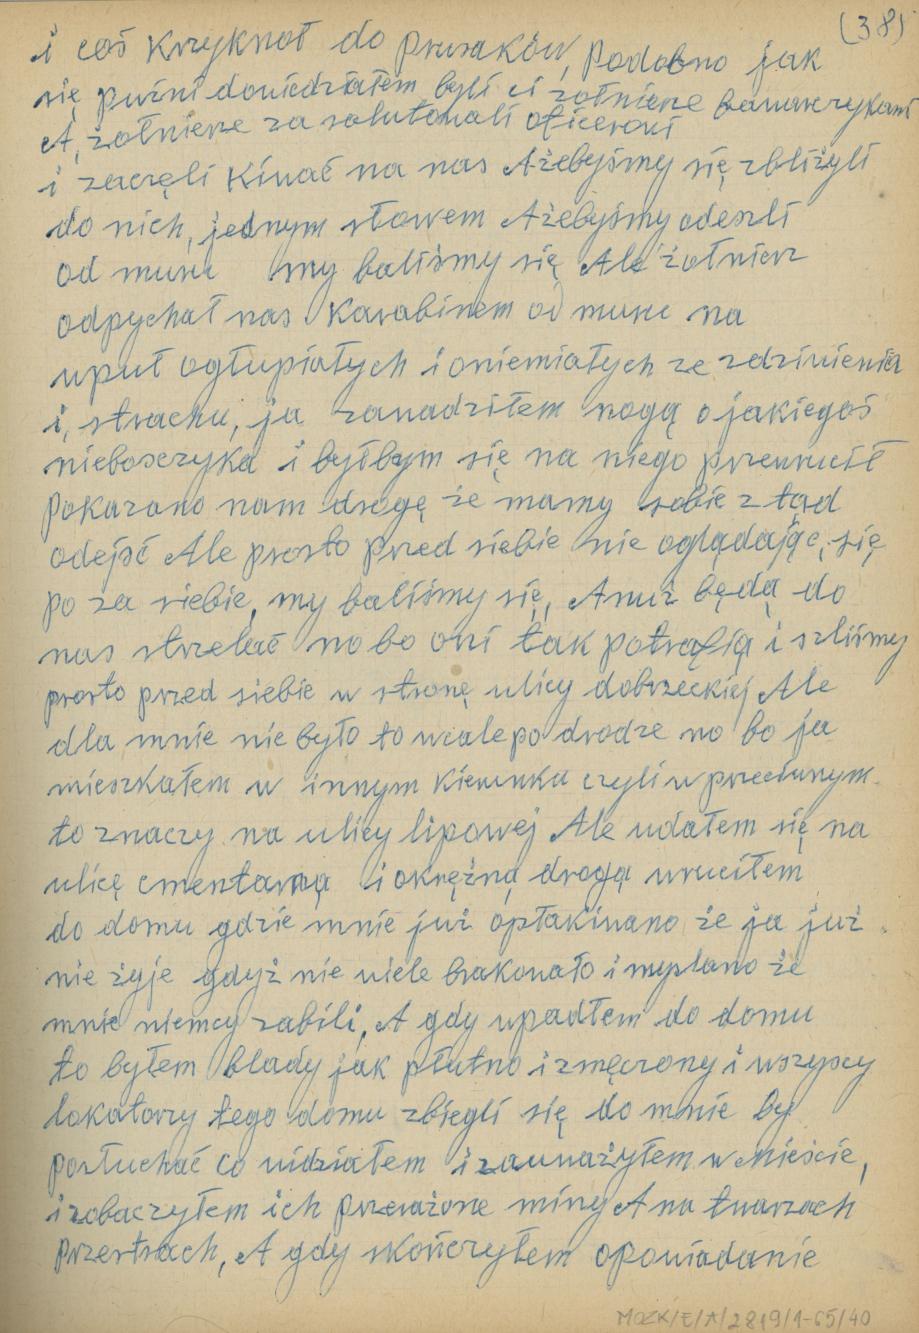 (38)
i coś Krzyknoł do prusaków, podobno jak
się puźni dowiedziałem byli ci żołnierze bawarczykami
A, żołnierze za salutowali oficerowi
i zaczęli Kiwać na nas Ażebyśmy się zbliżyli
do nich, jednym słowem Ażebyśmy odeszli
od muru my baliśmy się Ale żołnierz
odpychał nas Karabinem od muru na
wpuł ogłupiałych i oniemiałych ze zdziwienia
i, strachu, ja zawadziłem nogą o jakiegoś
nieboszczyka i byłbym się na niego przewrucił
pokazano nam drogę że mamy sobie z tąd
odejść Ale prosto przed siebie nie oglądając, się
po za siebie, my baliśmy się, Anuż będą do
nas strzelać no bo oni tak potrafią i szliśmy
prosto przed siebie w stronę ulicy dobrzeckiej Ale
dla mnie nie było to wcale po drodze no bo ja
mieszkałem w innym Kierunku czyli w przeciwnym
to znaczy na ulicy lipowej Ale udałem się na
ulicę cmentarną i okrężną drogą wruciłem
do domu gdzie mnie już opłakiwano że ja już
nie żyje gdyż nie wiele brakowało i myślano że
mnie niemcy zabili, A gdy wpadłem do domu
to byłem blady jak płutno i zmęczony i wszyscy
lokatorzy tego domu zbiegli się do mnie by
posłuchać co widziałem i zauważyłem w Mieście,
i zobaczyłem ich przerażone miny A na twarzach
przestrach, A gdy skończyłem opowiadanie
MOZK/E/A/2819/1-65/40